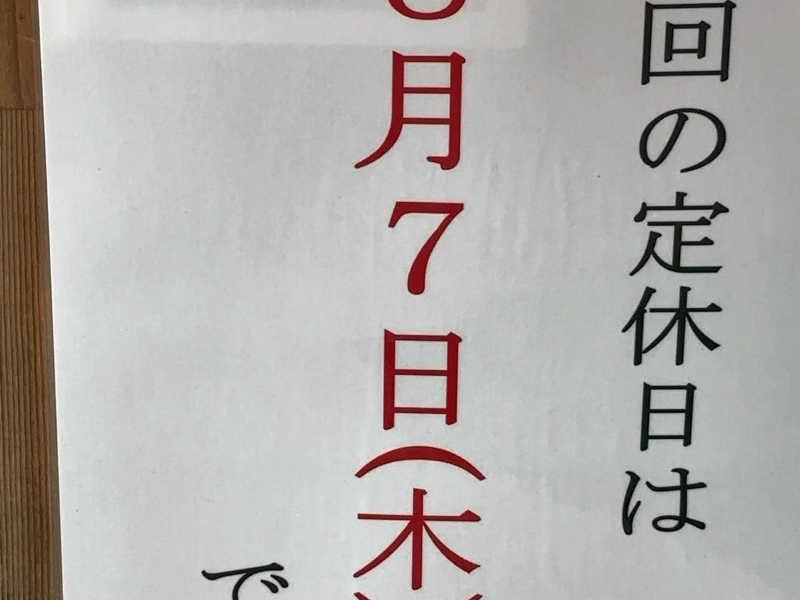 回の定休日は
月7日(木)
で